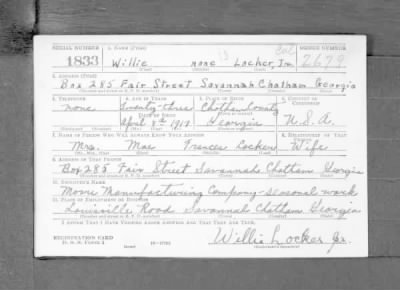 SERIAL NUMBER 1. NAME (Print) ORDER NUMBER
1833 Willie none Locker, Jr. Col 2679
(First) (Middle) (Last)
2. ADDRESS (Print)
Box 285 Fair Street Savannah Chatham Georgia
3. TELEPHONE 4. AGE IN YEARS 5. PLACE OF BIRTH 6. COUNTRY OF CITIZENSHIP
none Twenty-three Chatham County
DATE OF BIRTH
April 8th 1917 Georgia U.S.A.
7. NAME OF PERSON WHO WILL ALWAYS KNOW YOUR ADDRESS 8. RELATIONSHIP OF THAT PERSON
Mrs. Mae Frances Locker Wife
9. ADDRESS OF THAT PERSON
Box 285 Fair Street Savannah Chatham Georgia
10. EMPLOYER'S NAME
Manufacturing Company - seasonal work
11. PLACE OF EMPLOYMENT OR BUSINESS
Louisville Road Savannah Chatham Georgia
I AFFIRM THAT I HAVE VERIFIED ABOVE ANSWERS AND THAT THEY ARE TRUE.
REGISTRATION CARD
D. S. S. Form 1
Willie Locker Jr.